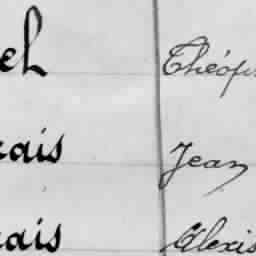 el Théop
rais Jean
rais Alexis